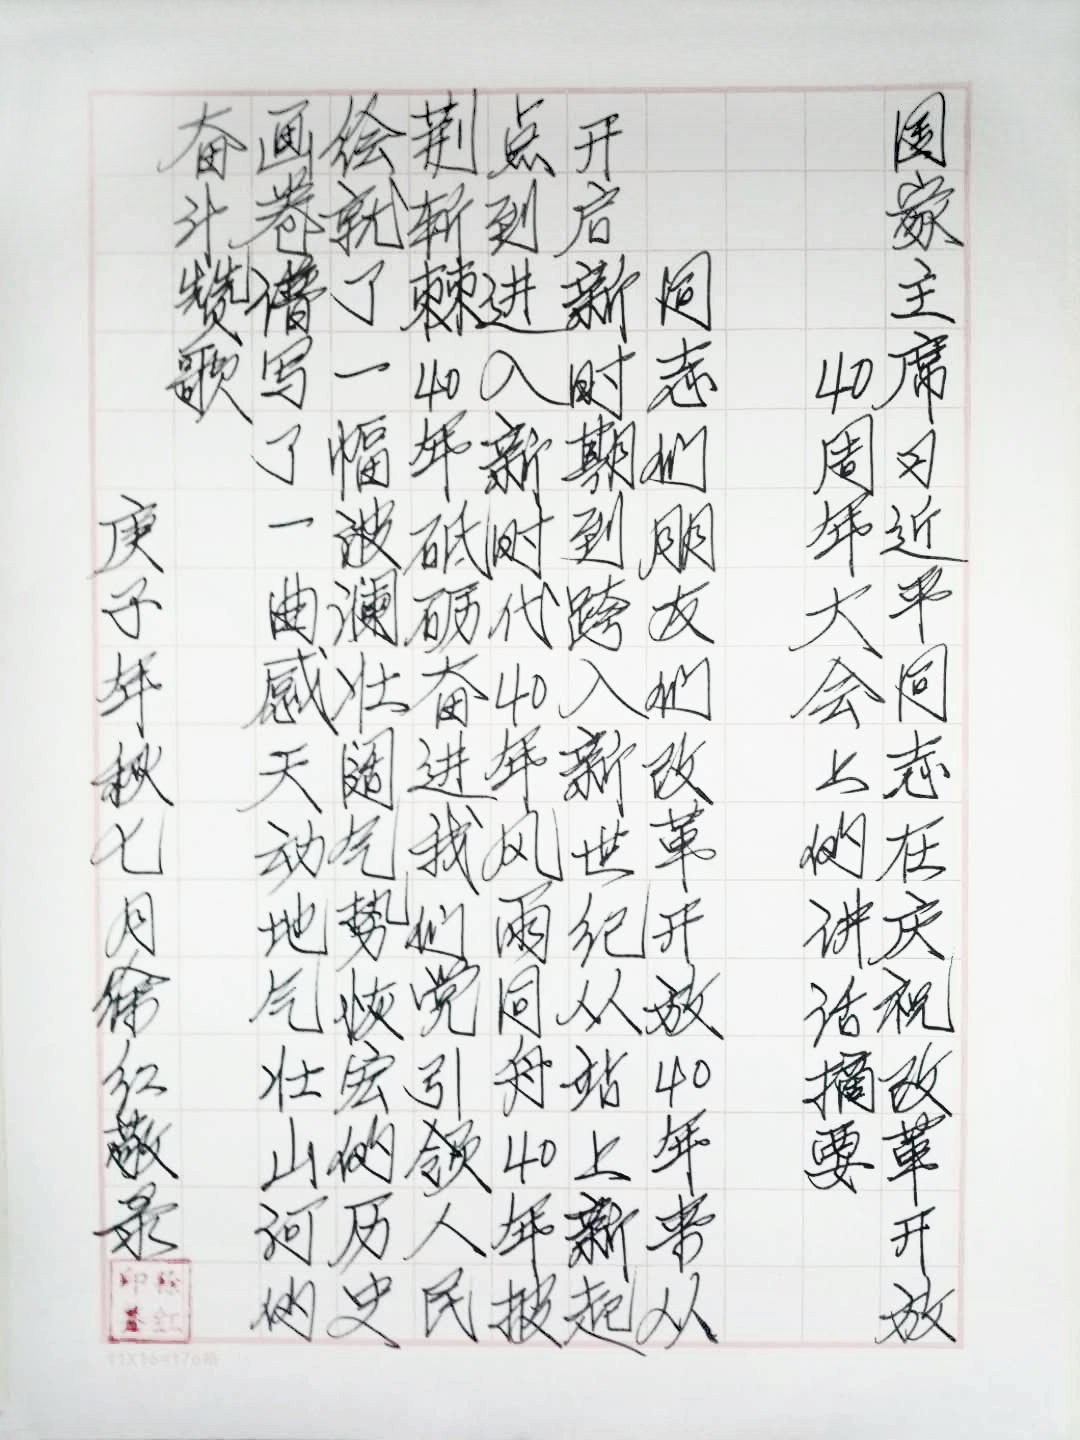 国家主席习近平同志在庆祝改革开放
40周年大会上的讲话摘要
同志们朋友们改革开放40年来从
开启新时期到跨入新世纪从站上新起
点到进入新时代40年风雨同舟40年披
荆斩棘40年砥砺奋进我们党引领人民
绘就了一幅波澜壮阔气势恢宏的历史
画卷谱写了一曲感天动地气壮山河的
奋斗赞歌
庚子年秋七月徐红敬录
徐红印
11X16=176格